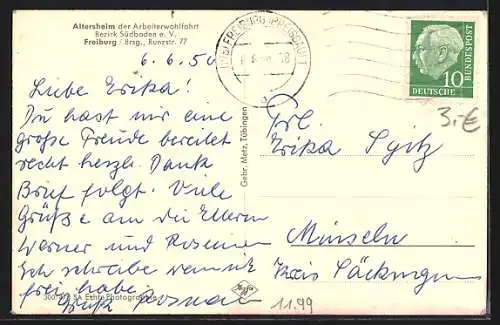 Altersheim der Arbeiterwohlfahrt
Bezirk Südbaden e. V.
Freiburg / Brsg., Runzstr. 77
6. 6. 50
Liebe Erika!
Du hast mir eine
große Freude bereitet
recht herzl. Dank
Brief folgt. Viele
Grüße an die Eltern
Werner und
Ich schreibe wenn ich
frei habe
Gruß
FREIBURG (BREISGAU)
DEUTSCHE BUNDESPOST
10
3.-€
Frl.
Erika Spitz
Minseln
Kreis Säckingen
Gebr. Metz, Tübingen
Echte Photographie
11.99